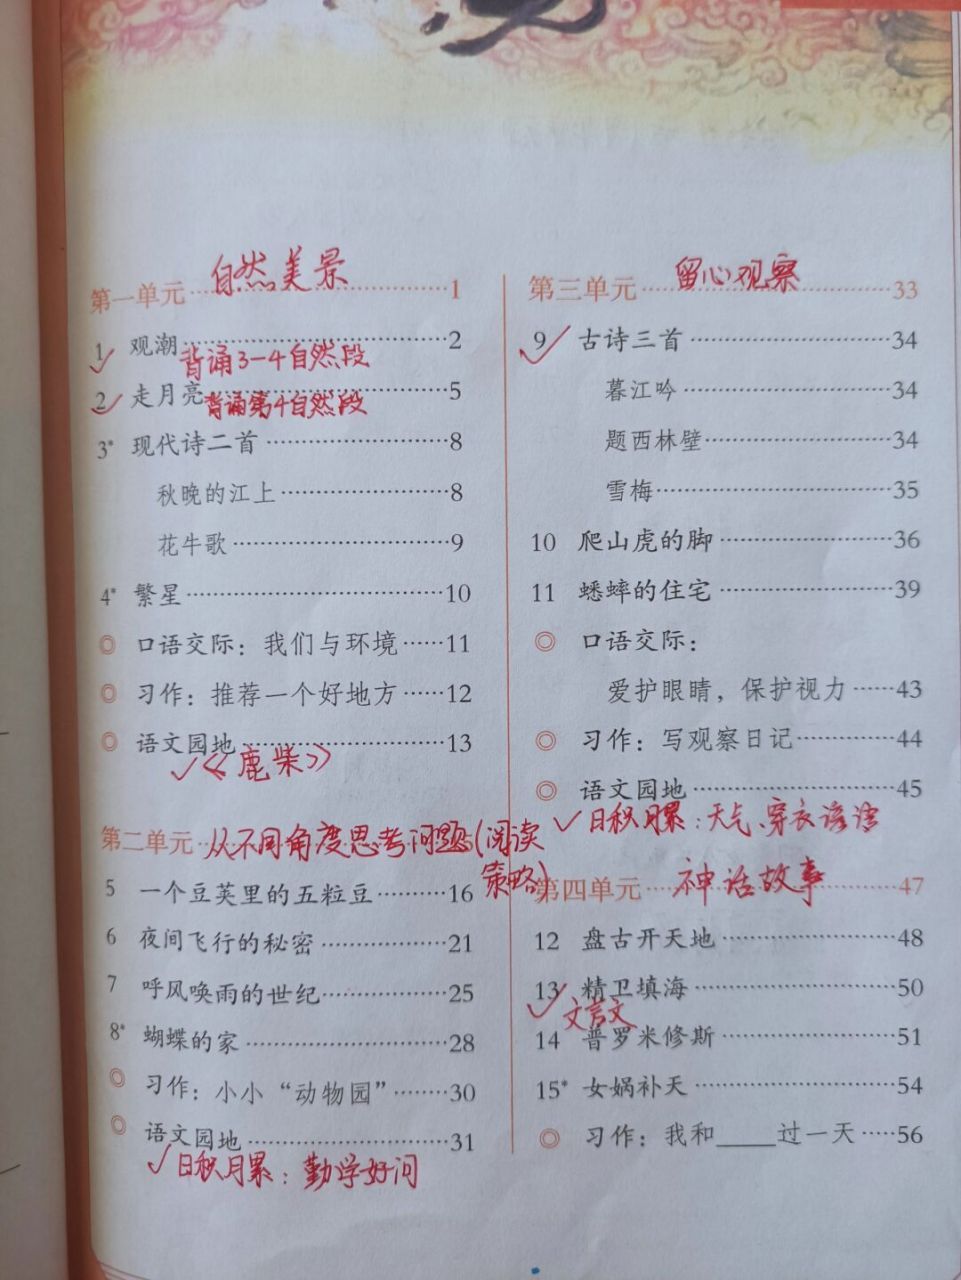 第一单元 自然美景 1
1 观潮 2
背诵3-4自然段
2 走月亮 5
背诵第4自然段
3* 现代诗二首 8
秋晚的江上 8
花牛歌 9
4* 繁星 10
口语交际：我们与环境 11
习作：推荐一个好地方 12
语文园地 13
《鹿柴》
第二单元 从不同角度思考问题(阅读
策略)
5 一个豆荚里的五粒豆 16
6 夜间飞行的秘密 21
7 呼风唤雨的世纪 25
8* 蝴蝶的家 28
习作：小小“动物园” 30
语文园地 31
日积月累：勤学好问
第三单元 留心观察 33
9 古诗三首 34
暮江吟 34
题西林壁 34
雪梅 35
10 爬山虎的脚 36
11 蟋蟀的住宅 39
口语交际：
爱护眼睛，保护视力 43
习作：写观察日记 44
语文园地 45
日积月累：天气、穿衣谚语
第四单元 神话故事 47
12 盘古开天地 48
13 精卫填海 50
文言文
14 普罗米修斯 51
15* 女娲补天 54
习作：我和____过一天 56